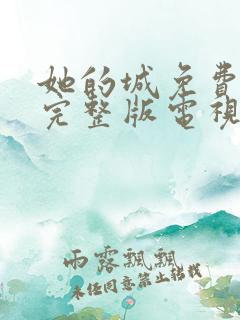 她的城免費
完整版電視
雨露飄飄
未经同意禁止转载